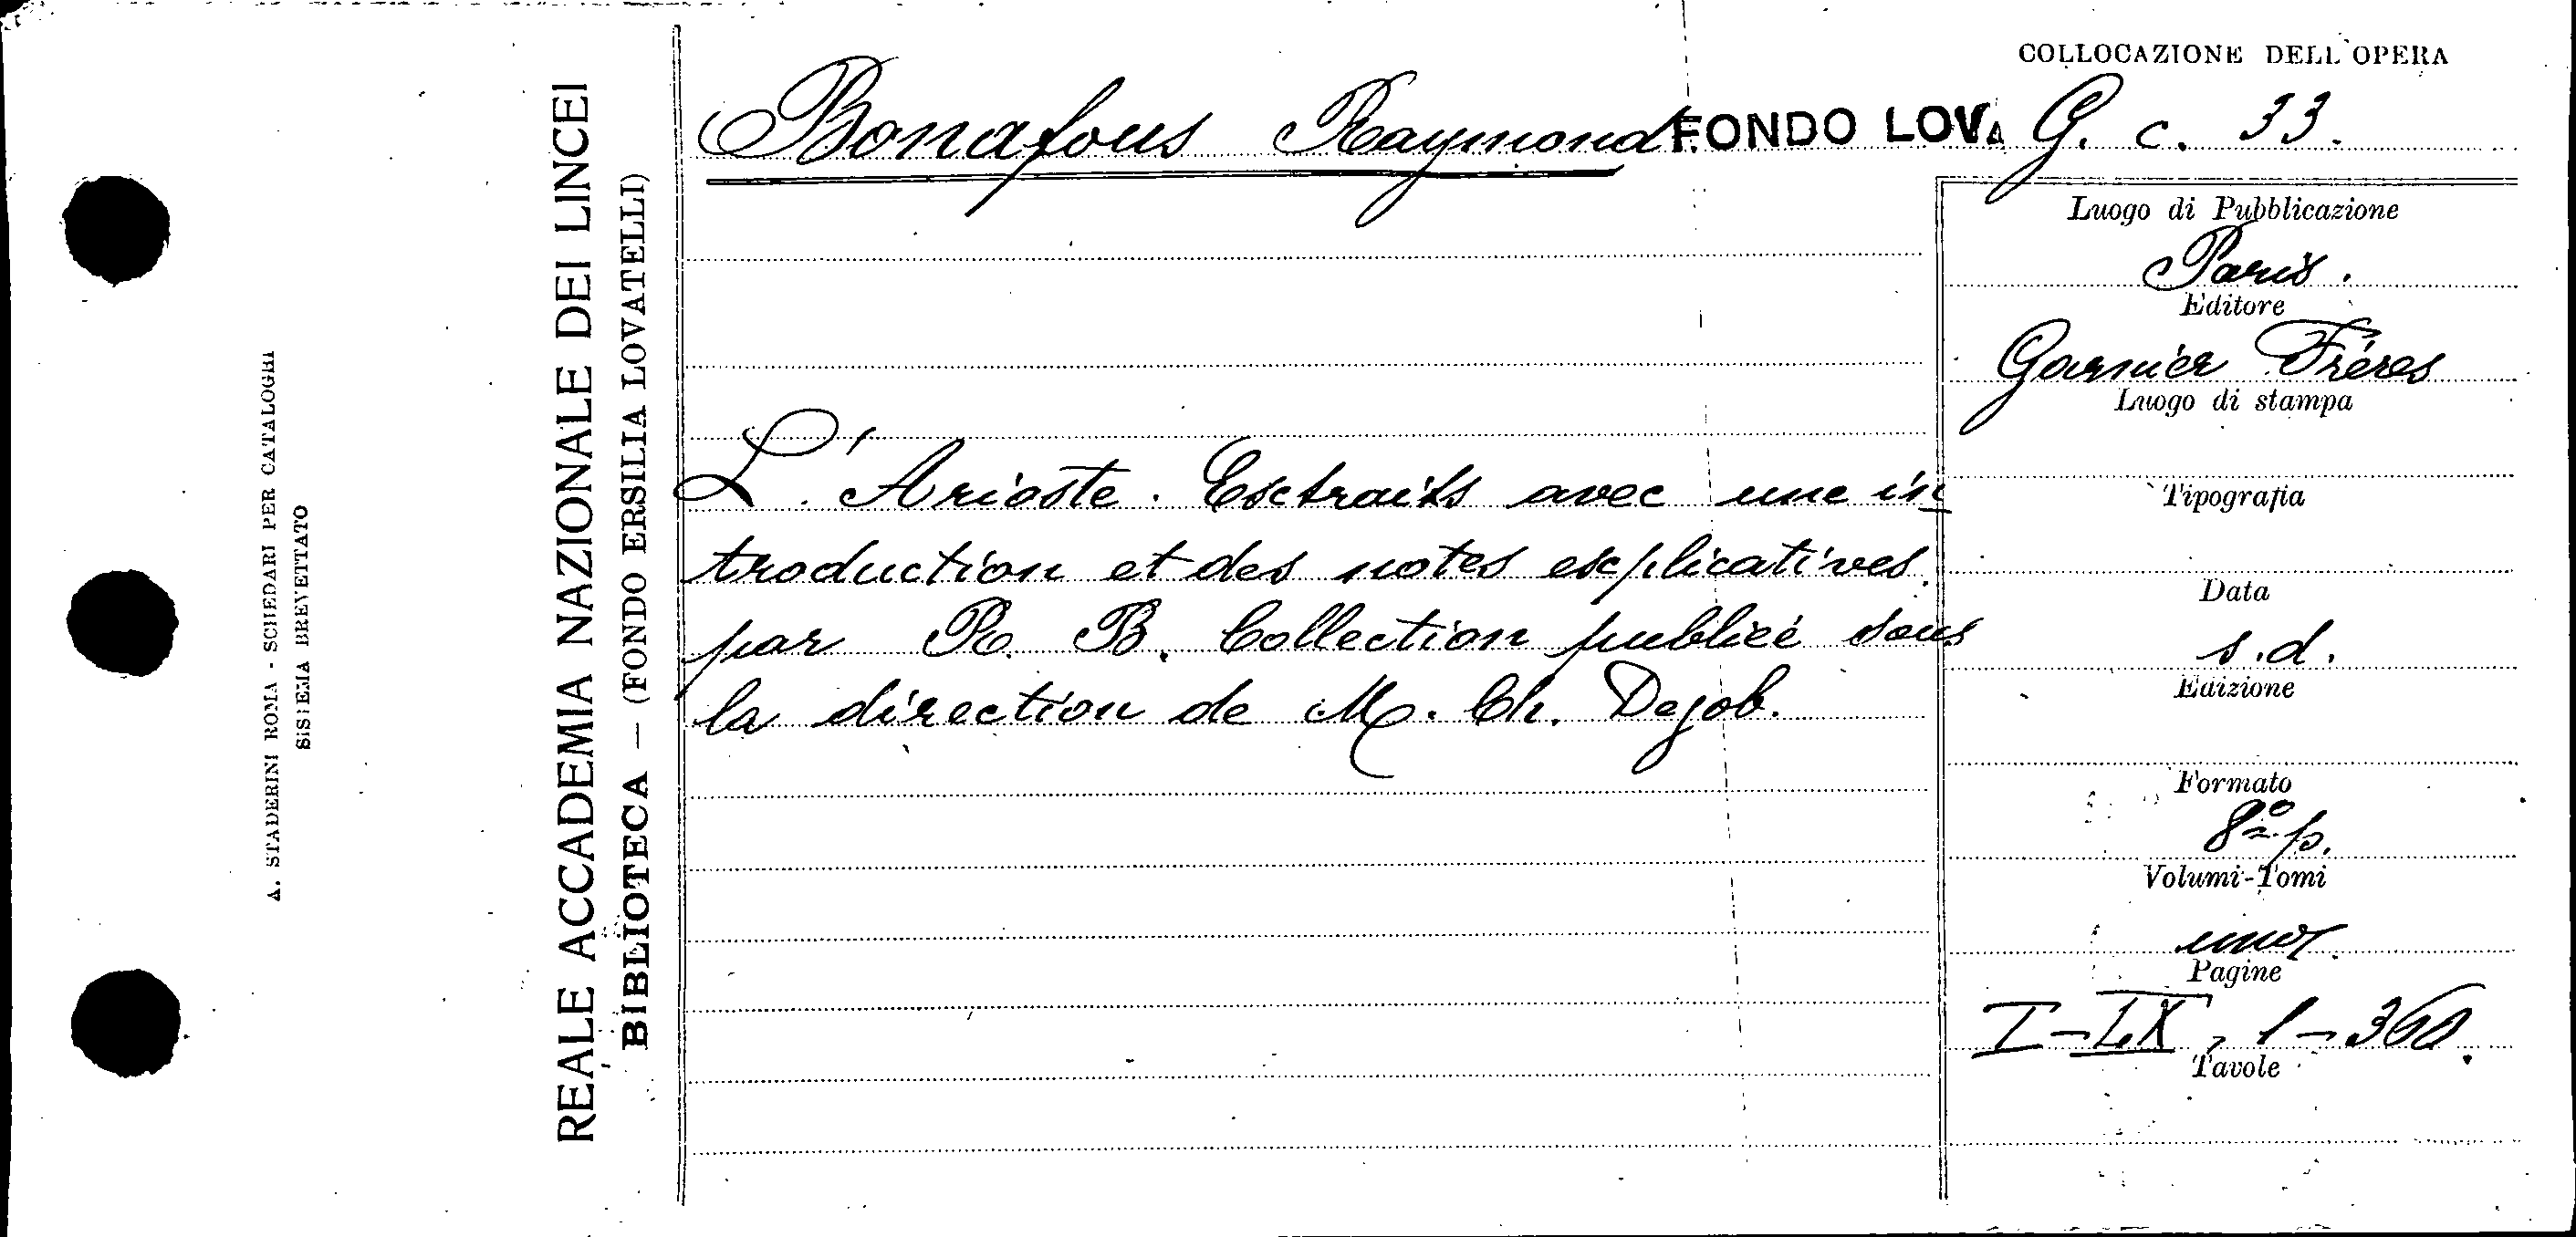 COLLOCAZIONE DELL'OPERA
Bonafous Raymond FONDO LOV. G. c. 33.
L'Arioste. Extraits avec une in
troduction et des notes explicatives
par R. B. Collection publiée sous
la direction de M. Ch. Dejob.
Luogo di Pubblicazione
Paris.
Editore
Garnier Frères
Luogo di stampa
Tipografia
Data
s.d.
Edizione
Formato
8º p.
Volumi-Tomi
uno
Pagine
I-LX, 1-360.
Tavole
REALE ACCADEMIA NAZIONALE DEI LINCEI
BIBLIOTECA — (FONDO ERSILIA LOVATELLI)
A. STADERINI ROMA - SCHEDARI PER CATALOGHI
SISTEMA BREVETTATO